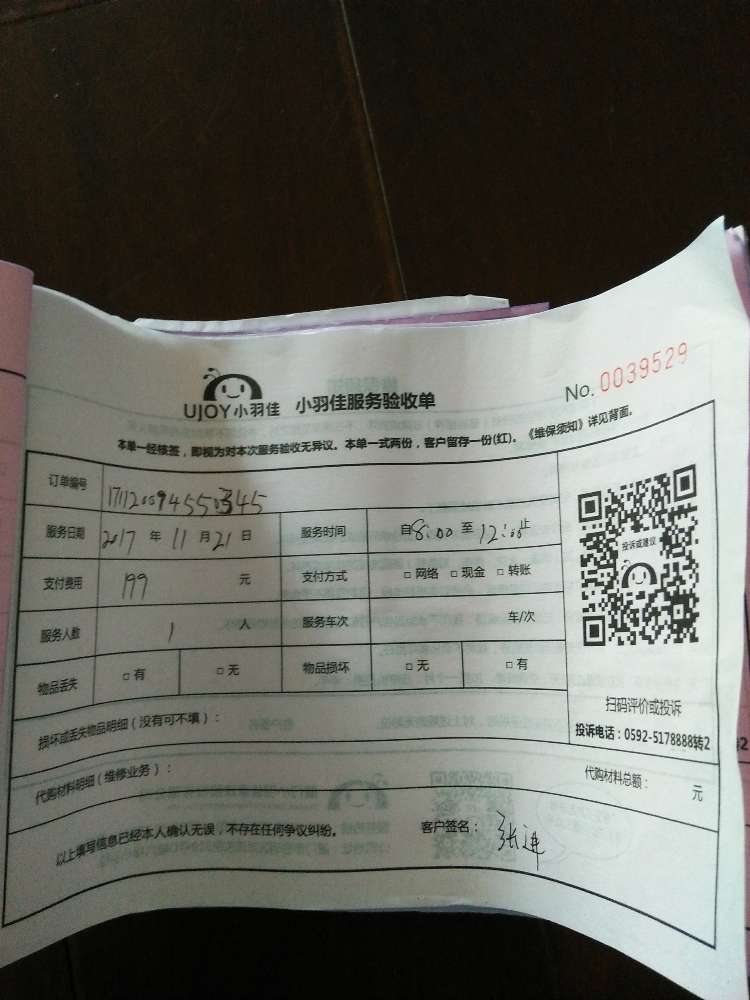 UJOY小羽佳 小羽佳服务验收单
No. 0039529
本单一经核签，即视为对本次服务验收无异议。本单一式两份，客户留存一份(红)。《维保须知》详见背面。
订单编号
服务日期 2017 年 11 月 21 日 服务时间 自8:00 至 12:00止
支付费用 199 元 支付方式 □ 网络 □ 现金 □ 转账
服务人数 1 人 服务车次 车/次
物品丢失 □ 有 □ 无 物品损坏 □ 无 □ 有
投诉或建议
扫码评价或投诉
投诉电话：0592-5178888转2
损坏或丢失物品明细（没有可不填）：
代购材料明细（维修业务）： 代购材料总额： 元
以上填写信息已经本人确认无误，不存在任何争议纠纷。 客户签名： 张进